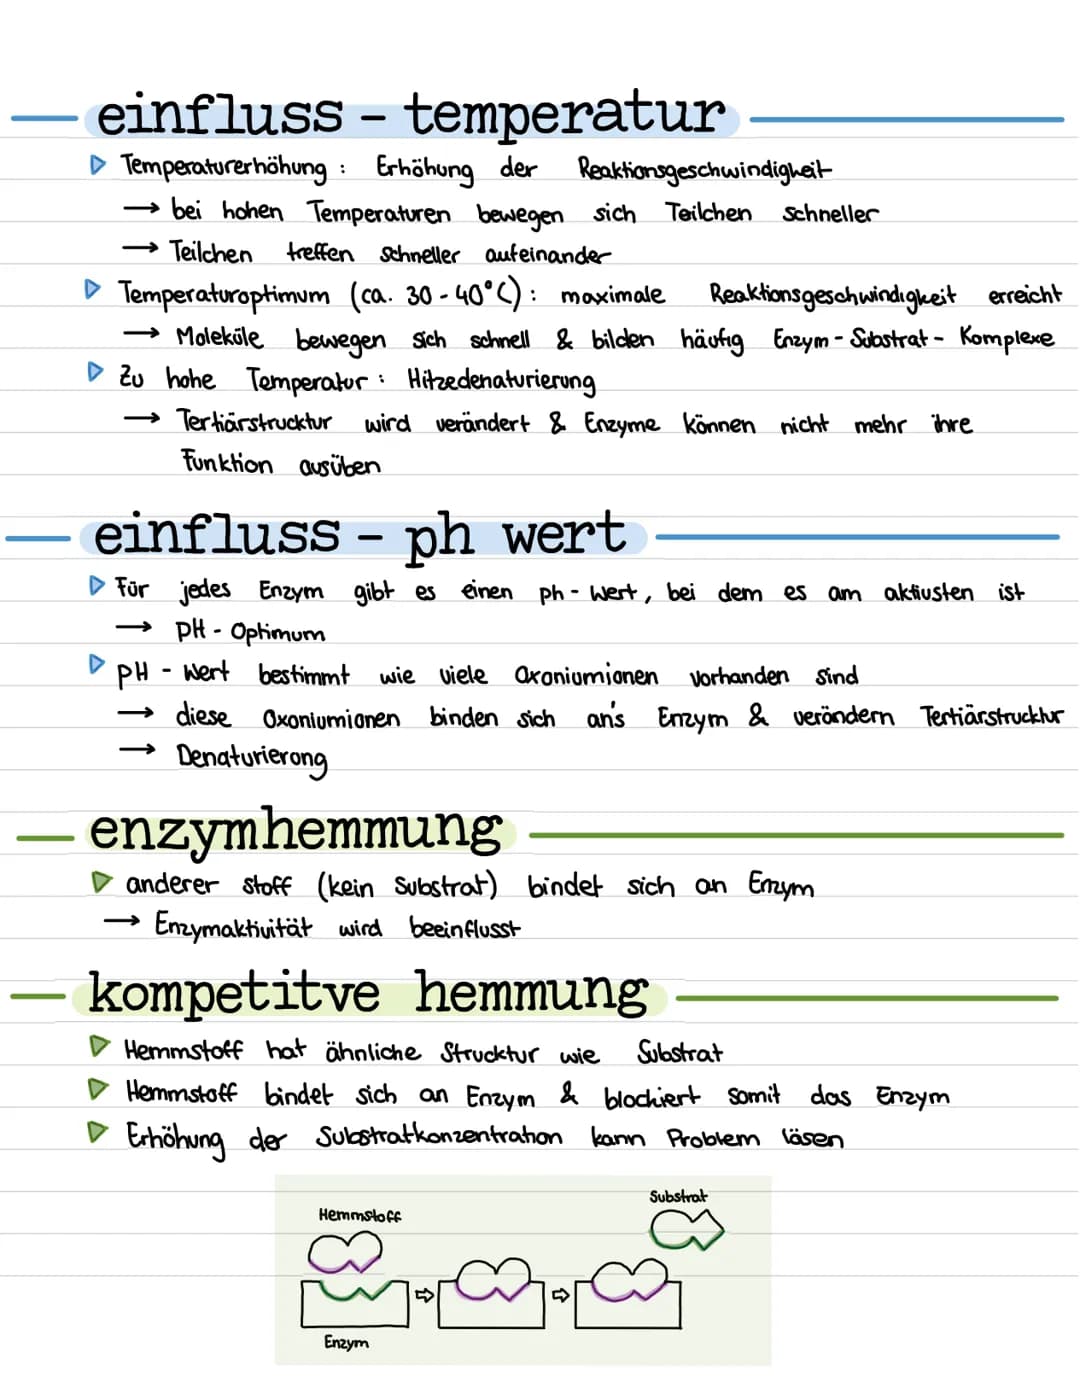 einfluss - temperatur
Temperaturerhöhung : Erhöhung der Reaktionsgeschwindigkeit
→ bei hohen Temperaturen bewegen sich Teilchen schneller
→ Teilchen treffen schneller aufeinander
Temperaturoptimum (ca. 30 - 40°C) : maximale Reaktionsgeschwindigkeit erreicht
→ Moleküle bewegen sich schnell & bilden häufig Enzym - Substrat - Komplexe
Zu hohe Temperatur : Hitzedenaturierung
→ Tertiärstrucktur wird verändert & Enzyme können nicht mehr ihre
Funktion ausüben
einfluss - ph wert
Für jedes Enzym gibt es einen ph - Wert, bei dem es am aktivsten ist
→ pH - Optimum
pH - Wert bestimmt wie viele Oxoniumionen vorhanden sind
→ diese Oxoniumionen binden sich an's Enzym & verändern Tertiärstrucktur
→ Denaturierung
enzymhemmung
anderer Stoff (kein Substrat) bindet sich an Enzym
→ Enzymaktivität wird beeinflusst
kompetitve hemmung
Hemmstoff hat ähnliche Strucktur wie Substrat
Hemmstoff bindet sich an Enzym & blockiert somit das Enzym
Erhöhung der Substratkonzentration kann Problem lösen
Substrat
Hemmstoff
Enzym